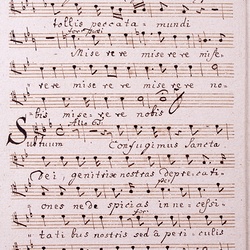 tollis peccata = mundi
Mise re re mise re re mise-
rere mise re re mise re re no-
bis, mise= re re nobis
Sub tuum Confugimus Sancta
Dei, genitrix nostras deprecati-
ones ne de spicias in ne= cessi-
tati bus nostris sed à peri= culis